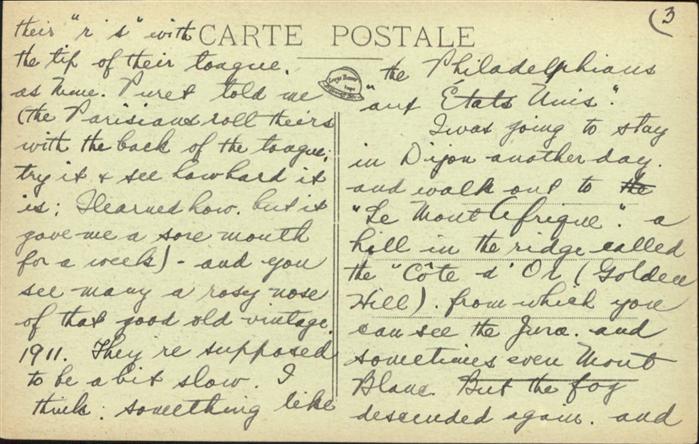 (3
CARTE POSTALE
their "r's" with
the tip of their tongue.
as Mme. Puret told me
(the Parisians roll theirs
with the back of the tongue;
try it & see how hard it
is; I learned how. but it
gave me a sore mouth
for a week) - and you
see many a rosy nose
of that good old vintage.
1911. They're supposed
to be a bit slow. I
think: something like
the Philadelphians
"aux Etats Unis".
I was going to stay
in Dijon another day.
and walk out to the
"Le Mont Afrique". a
hill in the ridge called
the "Côte d'Or (Golden
Hill). from which you
can see the Jura. and
sometimes even Mont
Blanc. But the fog
descended again. and